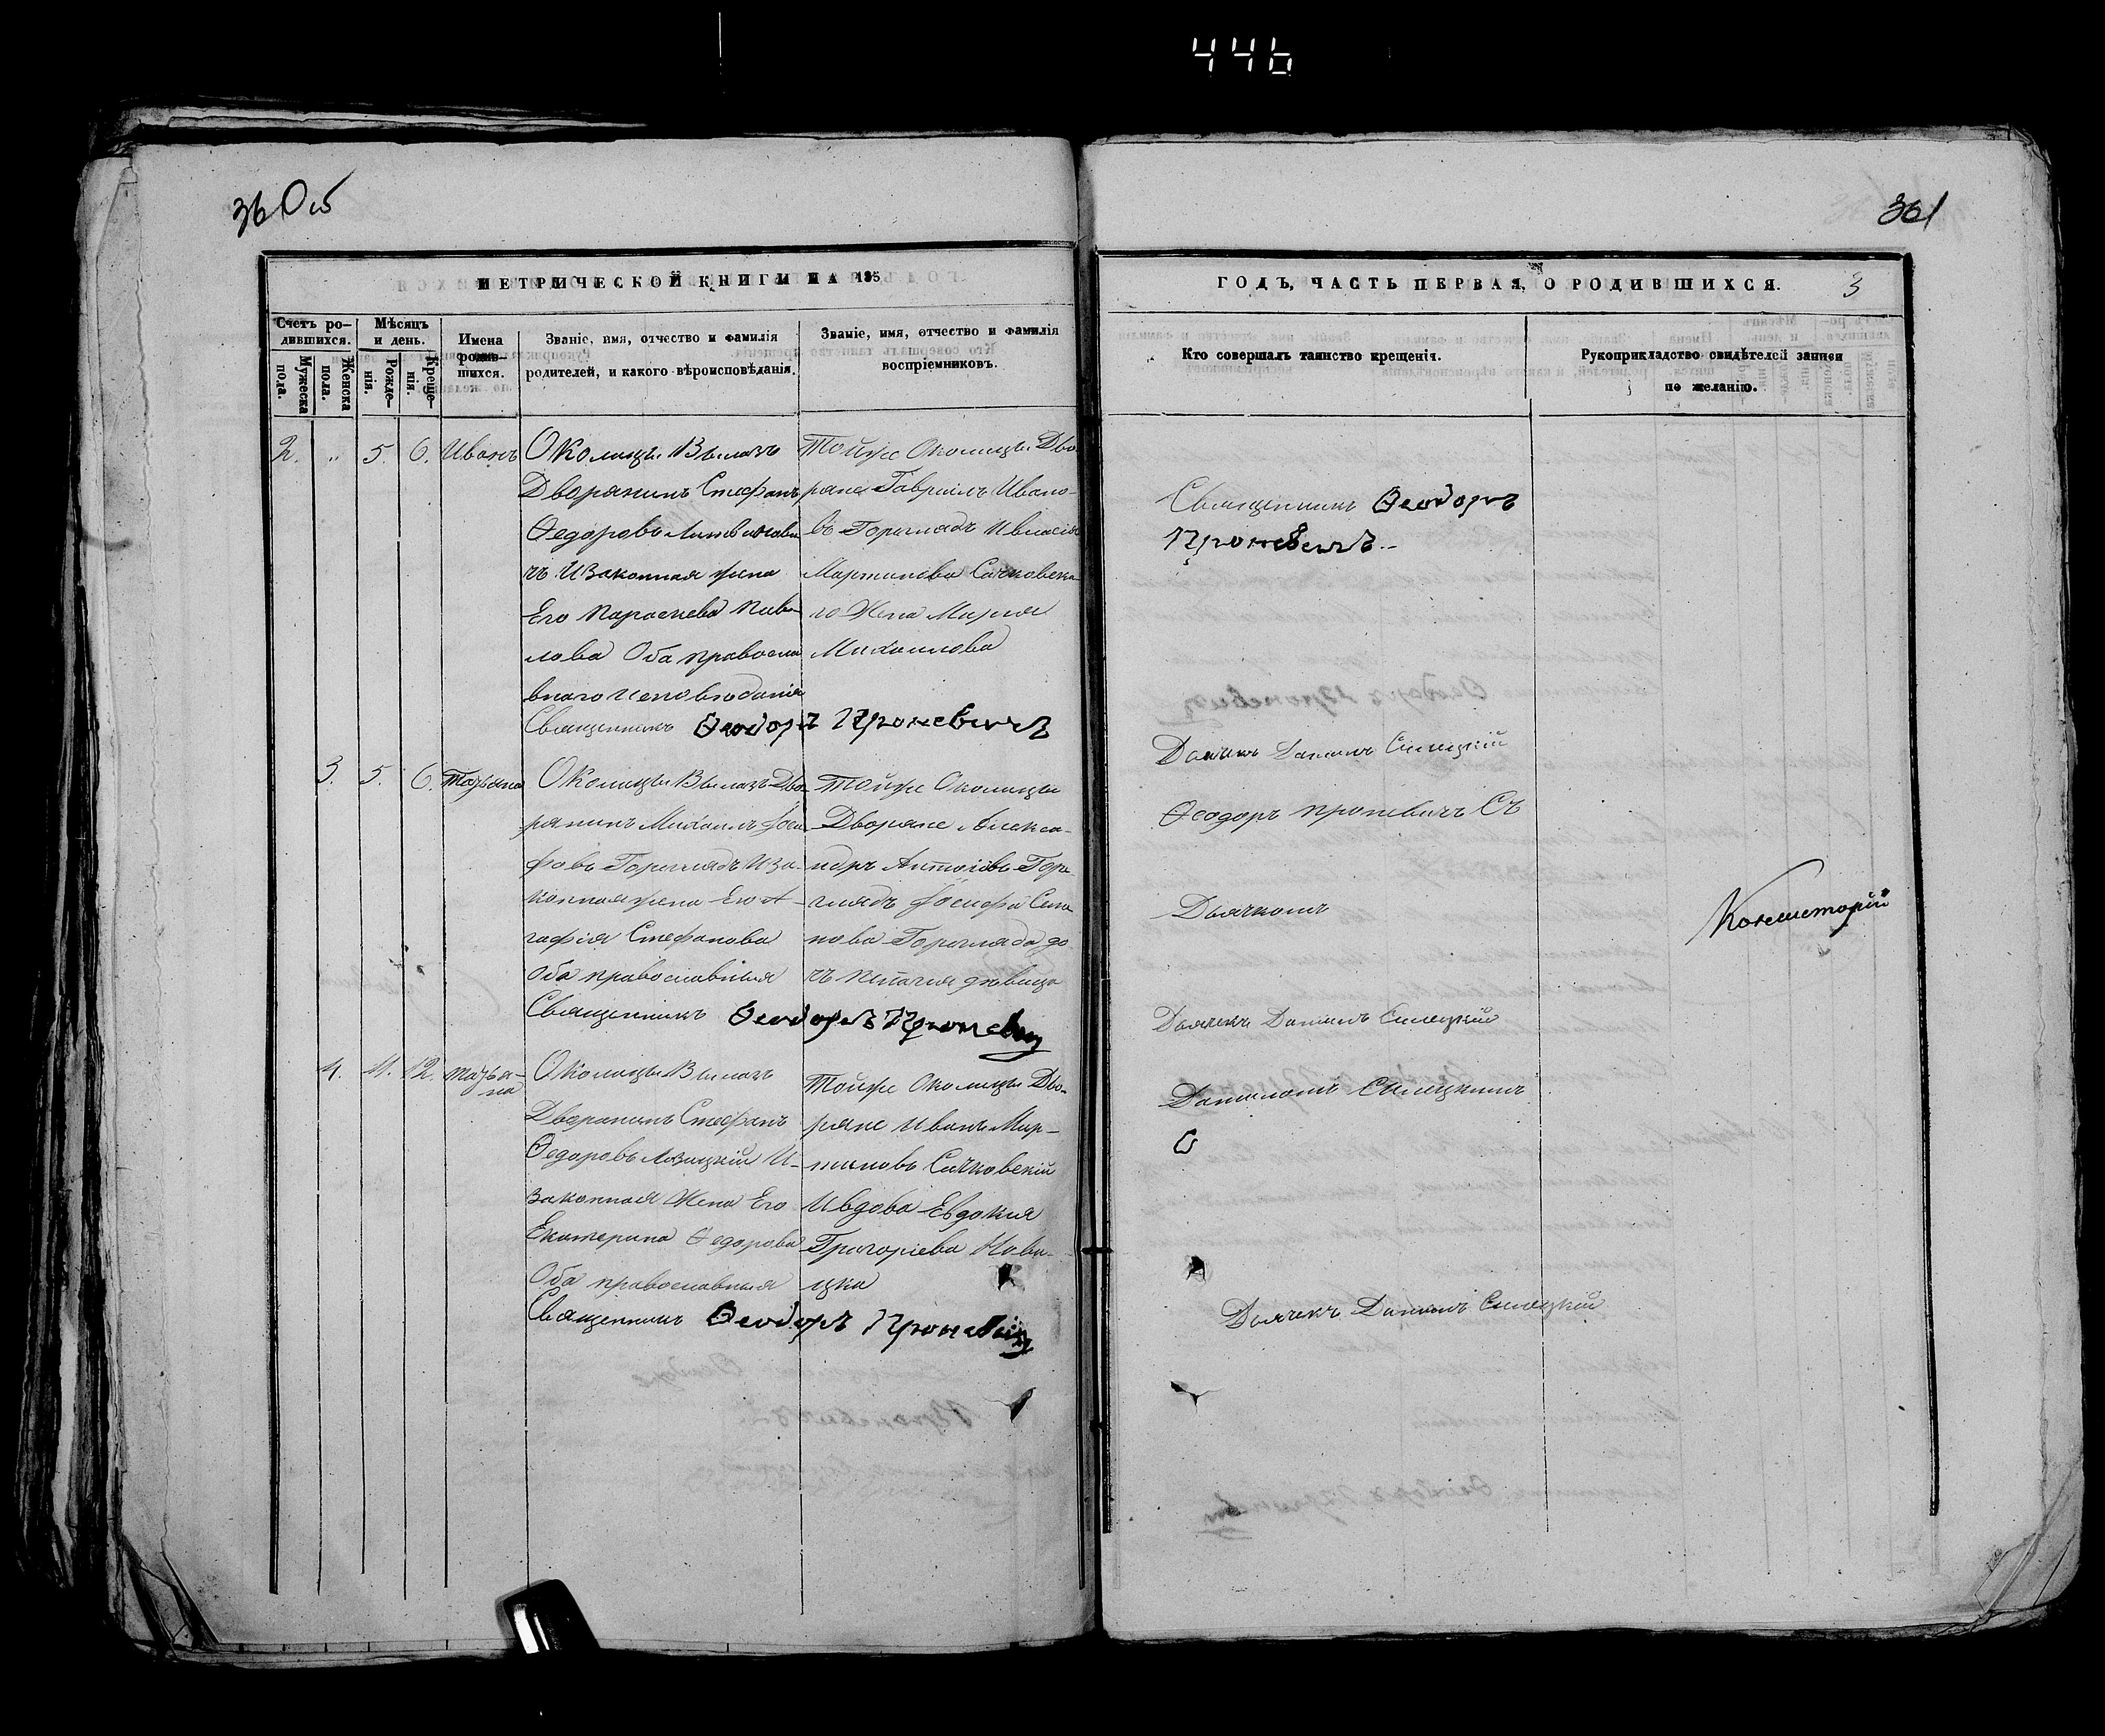 446
360 об
361
МЕТРИЧЕСКОЙ КНИГИ НА 185
ГОДЪ, ЧАСТЬ ПЕРВАЯ, О РОДИВШИХСЯ.
3
Счетъ ро-
дившихся.
Мужеска
пола.
Женска
пола.
Мѣсяцъ
и день.
Рожде-
нія.
Креще-
нія.
Имена
родив-
шихся.
Званіе, имя, отчество и фамилія
родителей, и какого вѣроисповѣданія.
Званіе, имя, отчество и фамилія
воспріемниковъ.
Кто совершалъ таинство крещенія.
Рукоприкладство свидѣтелей записи
по желанію.
2. " 5. 6. Иванъ
Околицы Вылазъ
Дворянинъ Стефанъ
Ѳедоровъ Литвинови
чъ И законная жена
Его Параскева Павы
лова Оба православ
внаго исповѣданія
Священникъ Ѳеодоръ Проневичъ
Тойже Околицы Дво
ряне Гавріилъ Ивано-
въ Гореглядъ И
Мартинова Сачковска
го Жена Марія
Михаилова
Священникъ Ѳеодоръ
Проневичъ.-
Дьячекъ Даніилъ Силецкій
3. 5. 6. Татьяна
Околицы Вылазъ Дво
рянинъ Михаилъ Іоси
фовъ Гореглядъ И за-
конная жена Его А-
гафія Стефанова
Оба православныя
Священникъ Ѳеодоръ Проневич
Тойже Околицы
Дворяне Алекса-
ндръ Антоніовъ Горе
глядъ Іосифа Симо
нова Горегляда до
чъ дѣвица
Ѳеодоръ Проневичъ Съ
Дьячкомъ
Консисторій
Дьячекъ Даніилъ Силецкій
4. 11. 12. Татья-
на
Околицы Вылазъ
Дворянинъ Стефанъ
Ѳедоровъ Лозицкій И-
законная Жена Его
Екатерина Ѳедорова
Оба православныя
Священникъ Ѳеодоръ Проневич
Тойже Околицы Дво-
ряне Иванъ Мар-
тиновъ Сачковскій
И вдова Евдокия
Григоріева Нови-
цка
Даниломъ Силецкимъ
Дьячекъ Даніилъ Силецкій